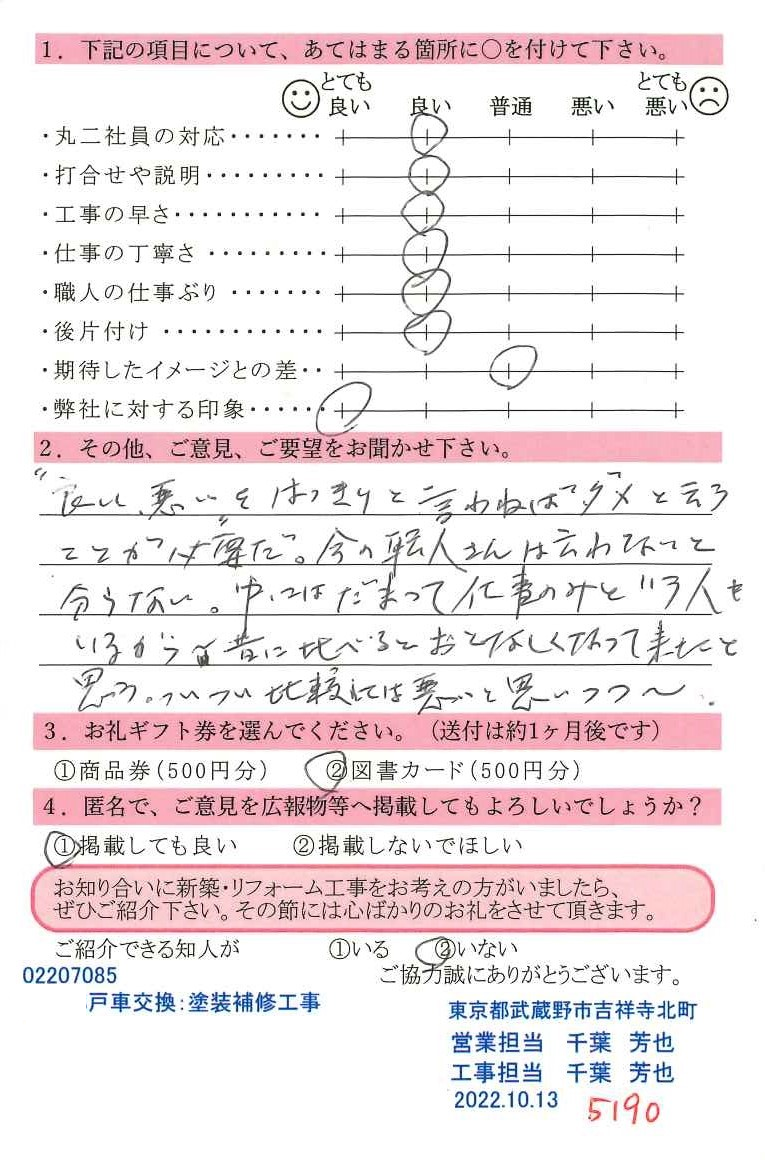 1. 下記の項目について、あてはまる箇所に○を付けて下さい。
とても良い 良い 普通 悪い とても悪い
・丸二社員の対応・・・・・・・
・打合せや説明・・・・・・・・・
・工事の早さ・・・・・・・・・・・
・仕事の丁寧さ・・・・・・・・・
・職人の仕事ぶり・・・・・・・
・後片付け・・・・・・・・・・・・
・期待したイメージとの差・・
・弊社に対する印象・・・・・・
2. その他、ご意見、ご要望をお聞かせ下さい。
"良い、悪いをはっきりと言わねば"ダメと云う
ことが"必要だ"。今の職人さんは云わないと
分らない。中にはだまって仕事のみという人も
いるから昔に比べるとおとなしくなって来たと
思う。ついつい比較しては悪いと思いつつ～
3. お礼ギフト券を選んでください。(送付は約1ヶ月後です)
①商品券(500円分) ②図書カード(500円分)
4. 匿名で、ご意見を広報物等へ掲載してもよろしいでしょうか?
①掲載しても良い ②掲載しないでほしい
お知り合いに新築・リフォーム工事をお考えの方がいましたら、
ぜひご紹介下さい。その節には心ばかりのお礼をさせて頂きます。
ご紹介できる知人が ①いる ②いない
ご協力誠にありがとうございます。
02207085
戸車交換:塗装補修工事
東京都武蔵野市吉祥寺北町
営業担当 千葉 芳也
工事担当 千葉 芳也
2022.10.13
5190